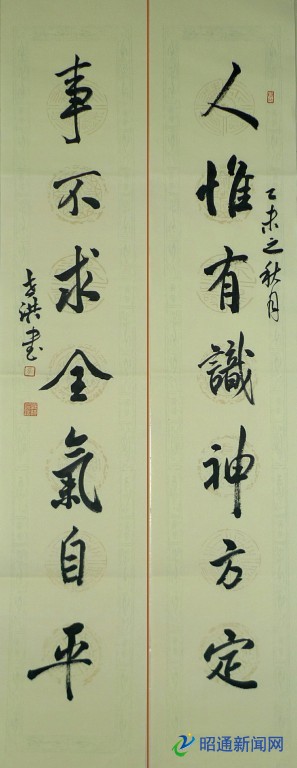 人惟有識神方定
乙未之秋月
事不求全氣自平
洪書
昭通新闻网